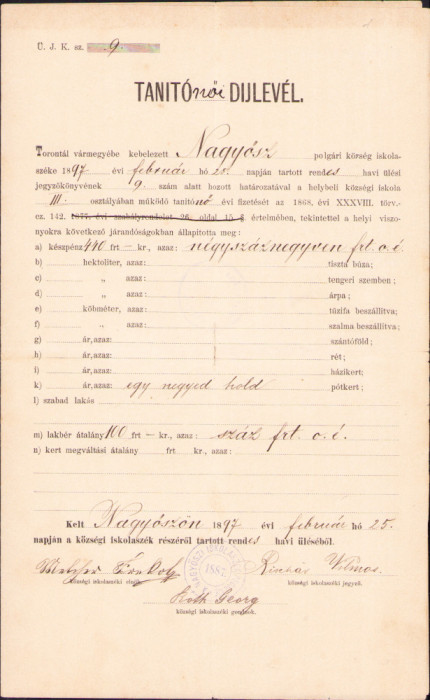 Ü. J. K. sz. 9
TANITÓnői DIJLEVÉL.
Torontál vármegyébe kebelezett Nagyősz polgári község iskola-
széke 1897 évi február hó 25. napján tartott rendes havi ülési
jegyzőkönyvének 9. szám alatt hozott határozatával a helybeli községi iskola
III. osztályában működő tanitónő évi fizetését az 1868. évi XXXVIII. törv.-
cz. 142. 1877. évi szabályrendelet 26. oldal 15 § értelmében, tekintettel a helyi viszo-
nyokra következő járandóságokban állapitotta meg:
a) készpénz 440 frt — kr., azaz: négyszáznegyven frt. o. é.
b) hektoliter, azaz: tiszta búza;
c) „ azaz: tengeri szemben;
d) „ azaz: árpa;
e) köbméter, azaz: tüzifa beszállitva;
f) „ azaz: szalma beszállitva;
g) ár, azaz: szántóföld;
h) ár, azaz: rét;
i) ár, azaz: házikert;
k) ár, azaz: egy negyed hold pótkert;
l) szabad lakás
m) lakbér átalány 100 frt — kr., azaz: száz frt. o. é.
n) kert megváltási átalány frt kr., azaz:
Kelt Nagyőszön 1897 évi február hó 25.
napján a községi iskolaszék részéről tartott rendes havi üléséből.
1887
Vilmos
községi iskolaszéki elnök. községi iskolaszéki jegyző.
Róth Georg
községi iskolaszéki gondnok.